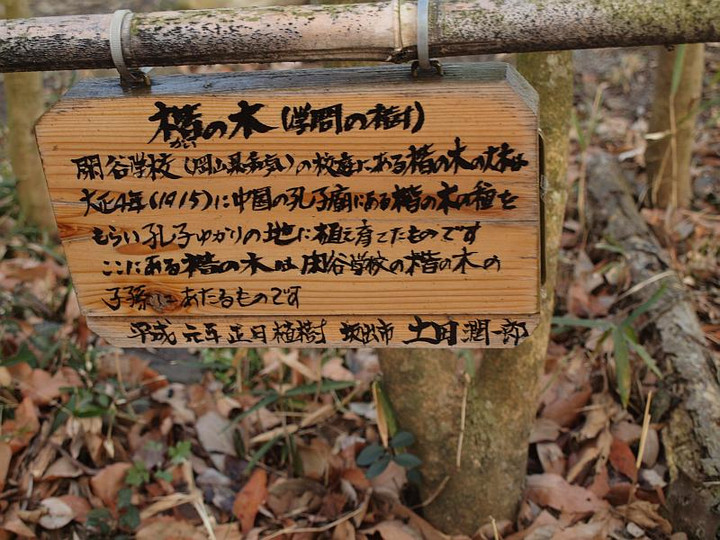 楷の木(学問の樹)
かい
閑谷学校(岡山県備前)の校庭にある楷の木の大木は
大正4年(1915)に中国の孔子廟にある楷の木の種を
もらい孔子ゆかりの地に植え育てたものです
ここにある楷の木は閑谷学校の楷の木の
子孫にあたるものです
平成元年正月植樹 坂出市 土田潤一郎